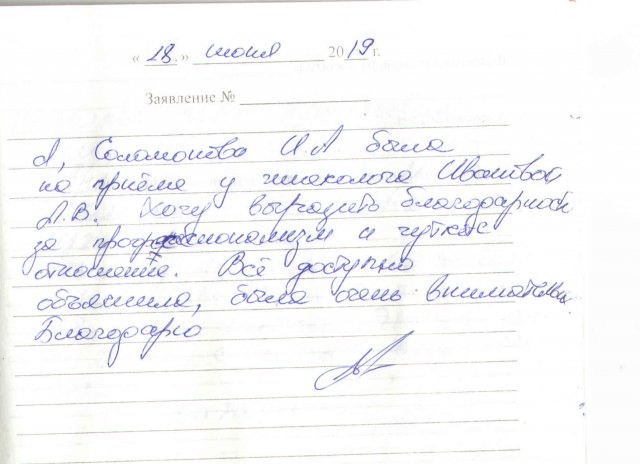 « 18. » июня 2019 г.
Заявление №
Я, Соломонова И.А была
на приёме у гинеколога Ивантвой
А.В. Хочу выразить благодарность
за профессионализм и чуткое
отношение. Всё доступно
объяснила, была очень внимательна
Благодарю